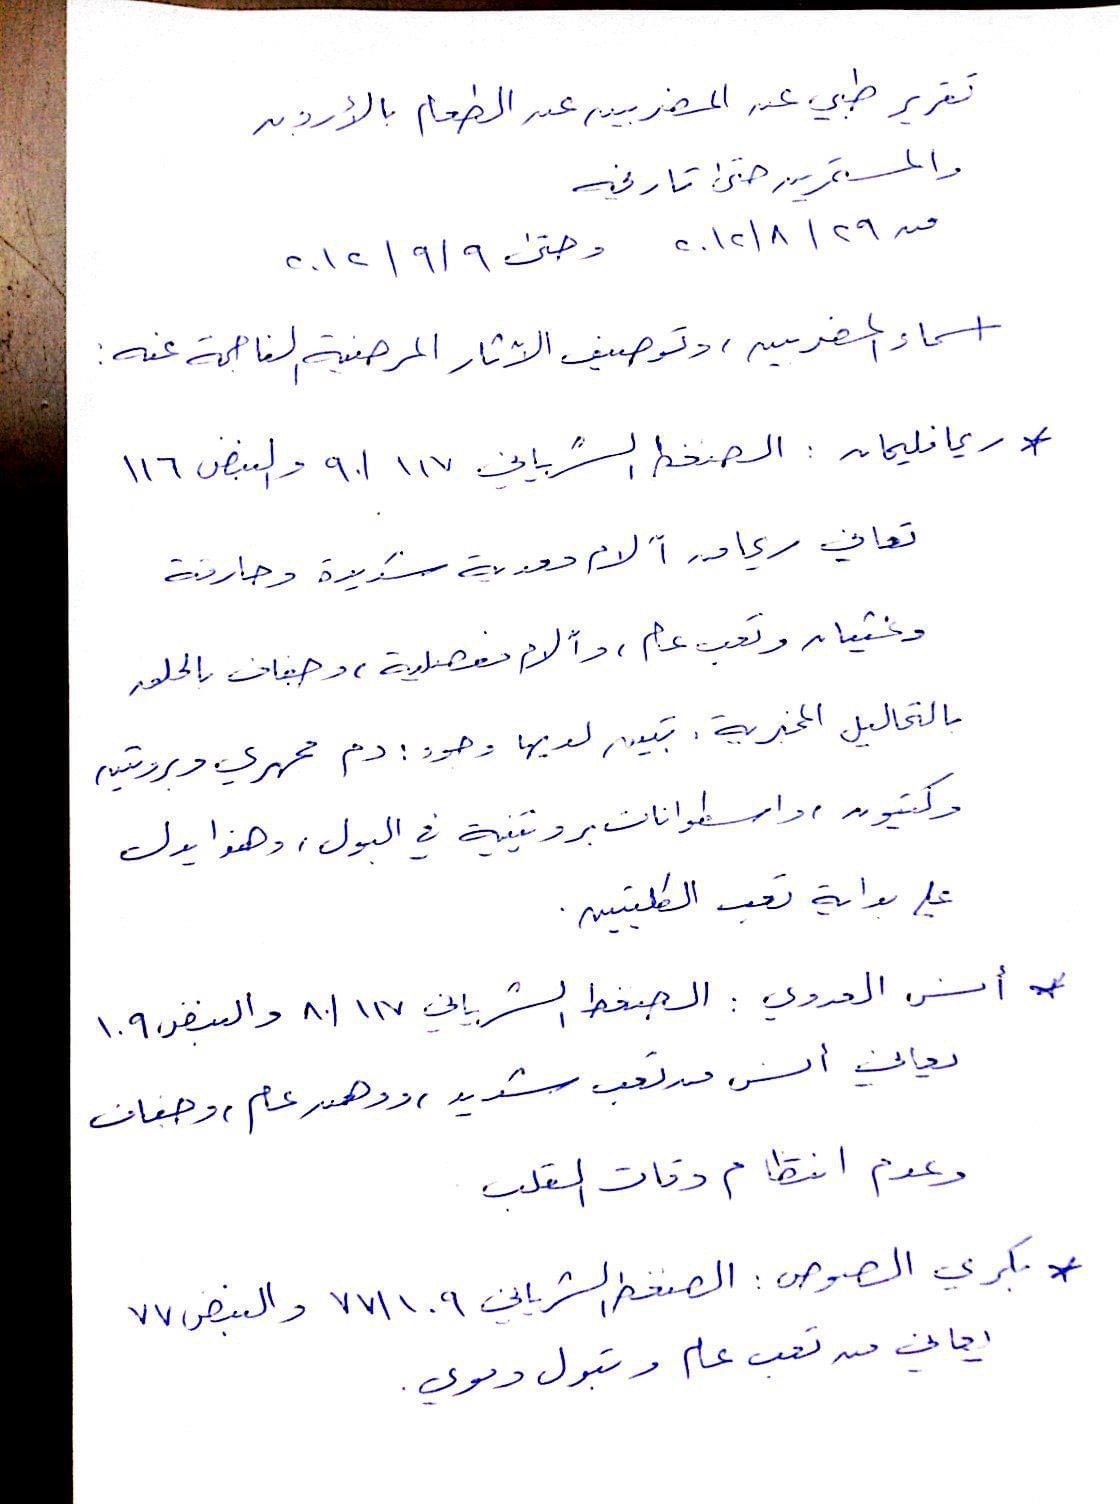 تقرير طبي عن المضربين عن الطعام بالأردن
والمستمرين حتى تاريخه
من ٢٩ / ٨ / ٢٠١٢ وحتى ٩ / ٩ / ٢٠١٢
اسماء المضربين ، وتوصيف الآثار المرضية الناجمة عنه :
* ريما فليحان : الضغط الشرياني ١١٧ / ٩٠ والنبض ١١٦
تعاني ريما من آلام معدية شديدة وحارقة
وغثيان وتعب عام ، وآلام مفصلية ، وجفاف بالحلق
بالتحاليل المخبرية : تبين لديها وجود : دم مجهري وبروتين
وكيتون ، واسطوانات بروتينية في البول ، وهذا يدل
على بداية تعب الكليتين .
* أنس العدوي : الضغط الشرياني ١١٧ / ٨٠ والنبض ١٠٩
يعاني أنس من تعب شديد ، ووهن عام ، وجفاف
وعدم انتظام دقات القلب
* بكري الصوص : الضغط الشرياني ١٠٩ / ٧٧ والنبض ٧٧
يعاني من تعب عام وتبول دموي .